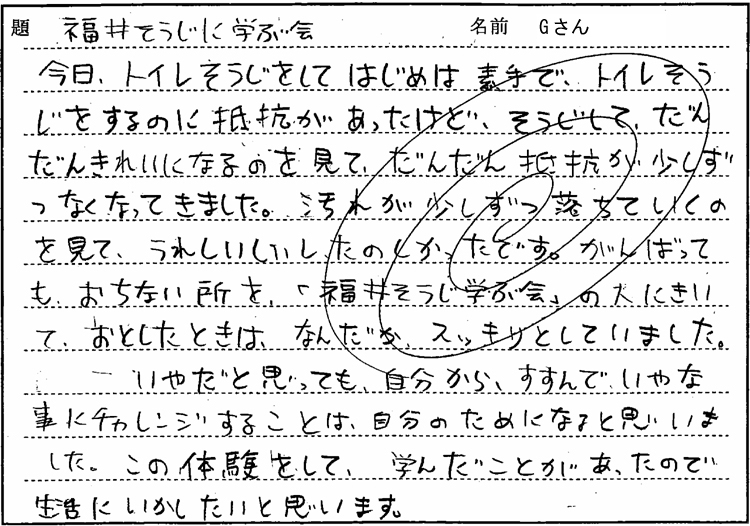 題 福井そうじに学ぶ会 名前 Gさん
今日、トイレそうじをして はじめは 素手で、トイレそう
じをするのに 抵抗が あったけど、そうじして、だん
だんきれいになるのを見て、だんだん 抵抗が少しず
つなくなってきました。汚れが少しずつ落ちていくの
を見て、うれしいしし、たのしかったです。がんばって
も、おちない所を、「福井そうじ学ぶ会」の人にきい
て、おとしたときは、なんだか、スッキリとしていました。
いやだと思っても、自分から、すすんで、いやな
事にチャレンジすることは、自分のためになると思いま
した。この体験をして、学んだことがあったので
生活にいかしたいと思います。